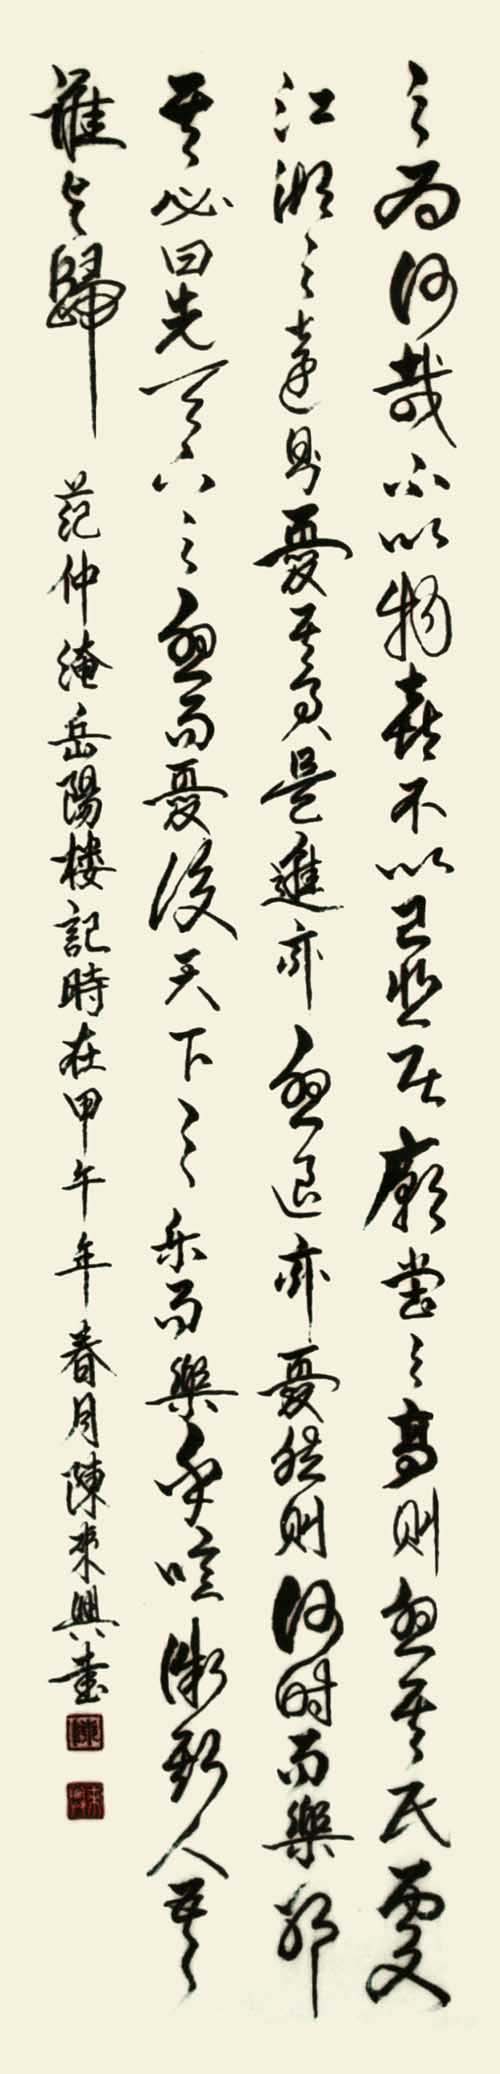 之为何哉不以物喜不以己悲居廟堂之高则憂其民處
江湖之遠則憂其君是進亦憂退亦憂然则何时而樂耶
其必曰先天下之憂而憂後天下之乐而樂乎噫微斯人吾
誰與歸 范仲淹岳陽楼記時在甲午年春月陳来興書